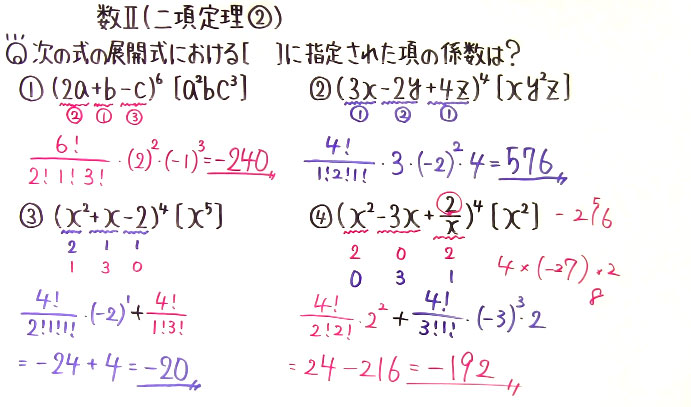 数Ⅱ(二項定理②)
Q 次の式の展開式における[ ]に指定された項の係数は?
① (2a+b-c)⁶ [a²bc³]
② ① ③
6!/2!1!3! ・(2)²・(-1)³=-240
② (3x-2y+4z)⁴ [xy²z]
① ② ①
4!/1!2!1! ・3・(-2)²・4=576
③ (x²+x-2)⁴ [x⁵]
2 1 1
1 3 0
4!/2!1!1! ・(-2)¹+4!/1!3!
=-24+4=-20
④ (x²-3x+2/x)⁴ [x²]
2 0 2
0 3 1
4!/2!2! ・2²+4!/3!1! ・(-3)³・2
=24-216=-192
4×(-27)×2
8